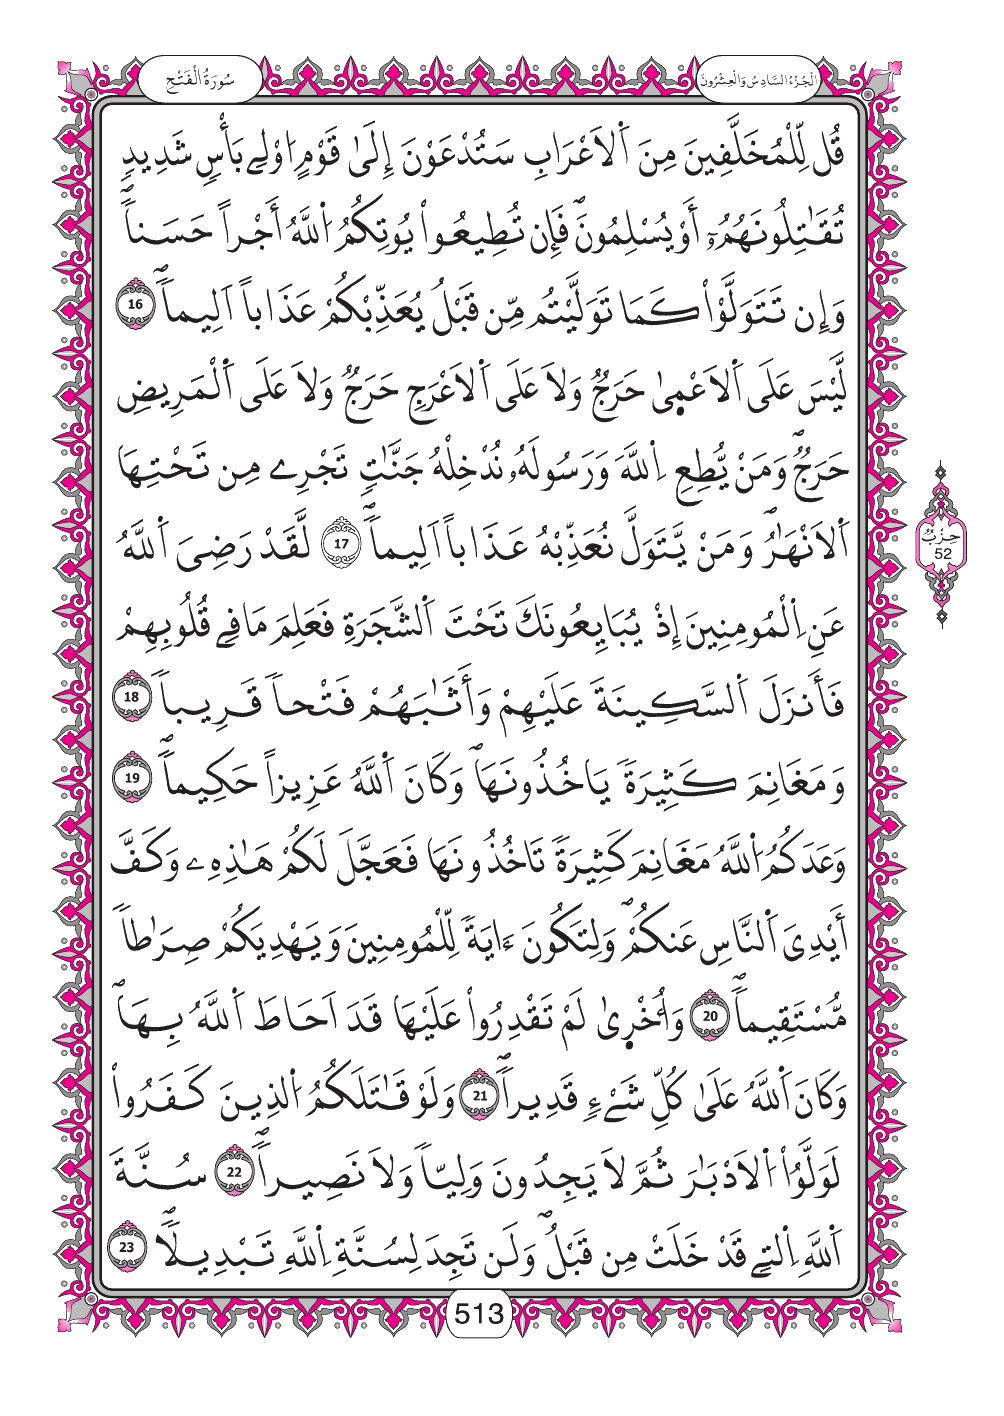 الْجُزْءُ السَّادِسُ وَالْعِشْرُونَ
سُورَةُ الْفَتْحِ
قُل لِّلْمُخَلَّفِينَ مِنَ اَ۬لَاعْرَابِ سَتُدْعَوْنَ إِلَىٰ قَوْمٍ ا۟وْلِے بَأْسٖ شَدِيدٖ
تُقَٰتِلُونَهُمُۥٓ أَوْ يُسْلِمُونَۖ فَإِن تُطِيعُواْ يُوتِكُمُ اُ۬للَّهُ أَجْراً حَسَناٗۖ
وَإِن تَتَوَلَّوْاْ كَمَا تَوَلَّيْتُم مِّن قَبْلُ يُعَذِّبْكُمْ عَذَاباً اَلِيماٗۖ 16
لَّيْسَ عَلَى اَ۬لَاعْم۪ىٰ حَرَجٞ وَلَا عَلَى اَ۬لَاعْرَجِ حَرَجٞ وَلَا عَلَى اَ۬لْمَرِيضِ
حَرَجٞۖ وَمَنْ يُّطِعِ اِ۬للَّهَ وَرَسُولَهُۥ نُدْخِلْهُ جَنَّٰتٖ تَجْرِے مِن تَحْتِهَا
اَ۬لَانْهَٰرُۖ وَمَنْ يَّتَوَلَّ نُعَذِّبْهُ عَذَاباً اَلِيماٗۖ 17 لَّقَدْ رَضِيَ اَ۬للَّهُ
عَنِ اِ۬لْمُومِنِينَ إِذْ يُبَايِعُونَكَ تَحْتَ اَ۬لشَّجَرَةِ فَعَلِمَ مَا فِے قُلُوبِهِمْ
فَأَنزَلَ اَ۬لسَّكِينَةَ عَلَيْهِمْ وَأَثَٰبَهُمْ فَتْحاٗ قَرِيباٗ 18
وَمَغَانِمَ كَثِيرَةٗ يَاخُذُونَهَاۖ وَكَانَ اَ۬للَّهُ عَزِيزاً حَكِيماٗۖ 19
وَعَدَكُمُ اُ۬للَّهُ مَغَانِمَ كَثِيرَةٗ تَاخُذُونَهَا فَعَجَّلَ لَكُمْ هَٰذِهِۦ وَكَفَّ
أَيْدِيَ اَ۬لنَّاسِ عَنكُمْۖ وَلِتَكُونَ ءَايَةٗ لِّلْمُومِنِينَ وَيَهْدِيَكُمْ صِرَٰطاٗ
مُّسْتَقِيماٗۖ 20 وَأُخْر۪ىٰ لَمْ تَقْدِرُواْ عَلَيْهَا قَدَ اَحَاطَ اَ۬للَّهُ بِهَاۖ
وَكَانَ اَ۬للَّهُ عَلَىٰ كُلِّ شَےْءٖ قَدِيراٗۖ 21 وَلَوْ قَٰتَلَكُمُ اُ۬لذِينَ كَفَرُواْ
لَوَلَّوُاْ اُ۬لَادْبَٰرَ ثُمَّ لَا يَجِدُونَ وَلِيّاٗ وَلَا نَصِيراٗۖ 22 سُنَّةَ
اَ۬للَّهِ اِ۬لتِے قَدْ خَلَتْ مِن قَبْلُۖ وَلَن تَجِدَ لِسُنَّةِ اِ۬للَّهِ تَبْدِيلاٗۖ 23
حِزْبُ
52
513